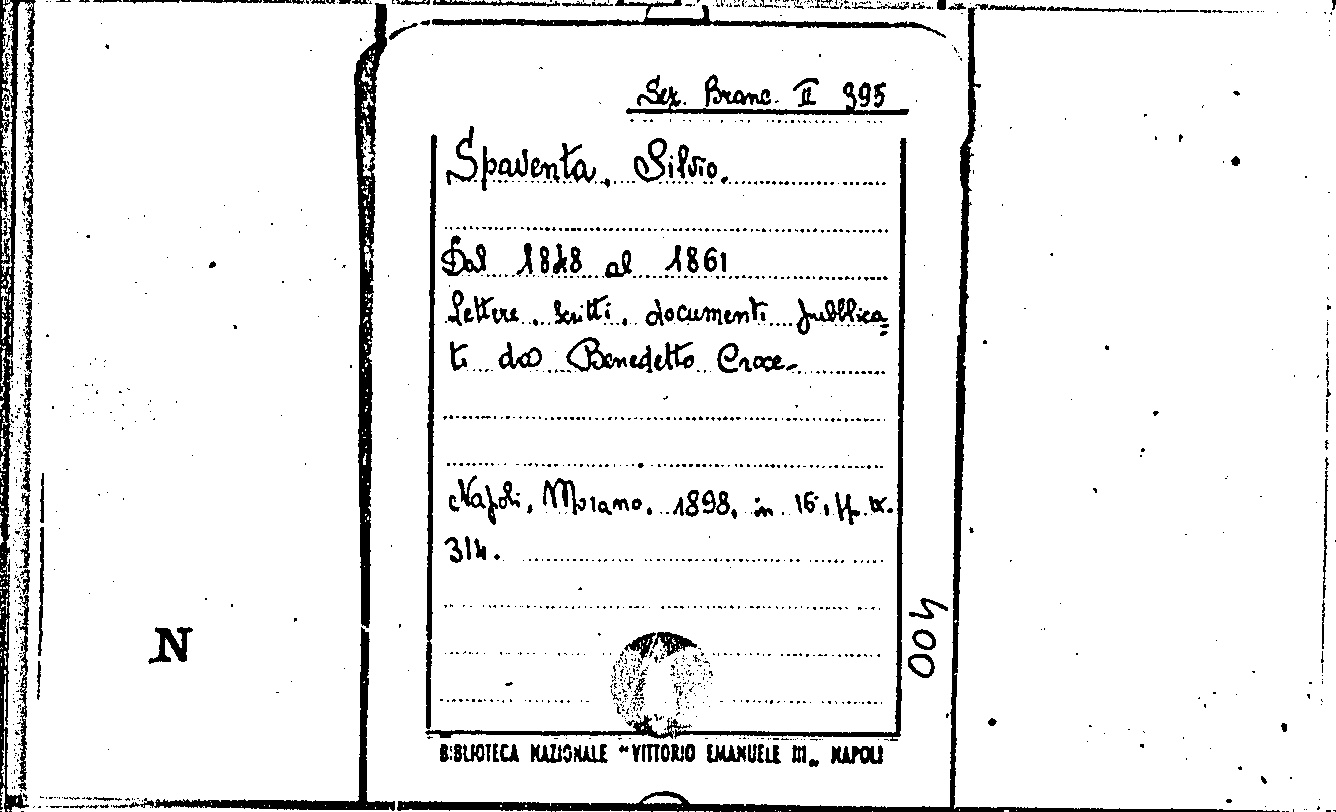 Sez. Branc. II 395
Spaventa, Silvio.
Dal 1848 al 1861
Lettere, scritti, documenti pubblica=
ti da Benedetto Croce.
Napoli, Morano, 1898, in 16°, pp. IX.
314.
400
N
BIBLIOTECA NAZIONALE "VITTORIO EMANUELE III„ NAPOLI